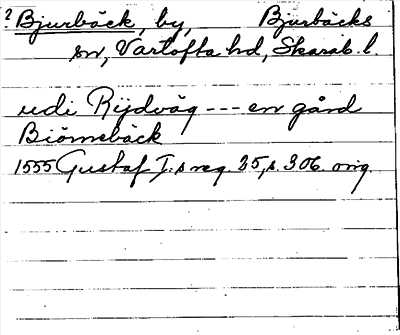 ? Bjurbäck, by, Bjurbäcks
sn, Vartofta hd, Skarab. l.
udi Rijdvåg --- en gård
Biörnebäck
1555 Gustaf I:s reg. 25, s. 306. orig.